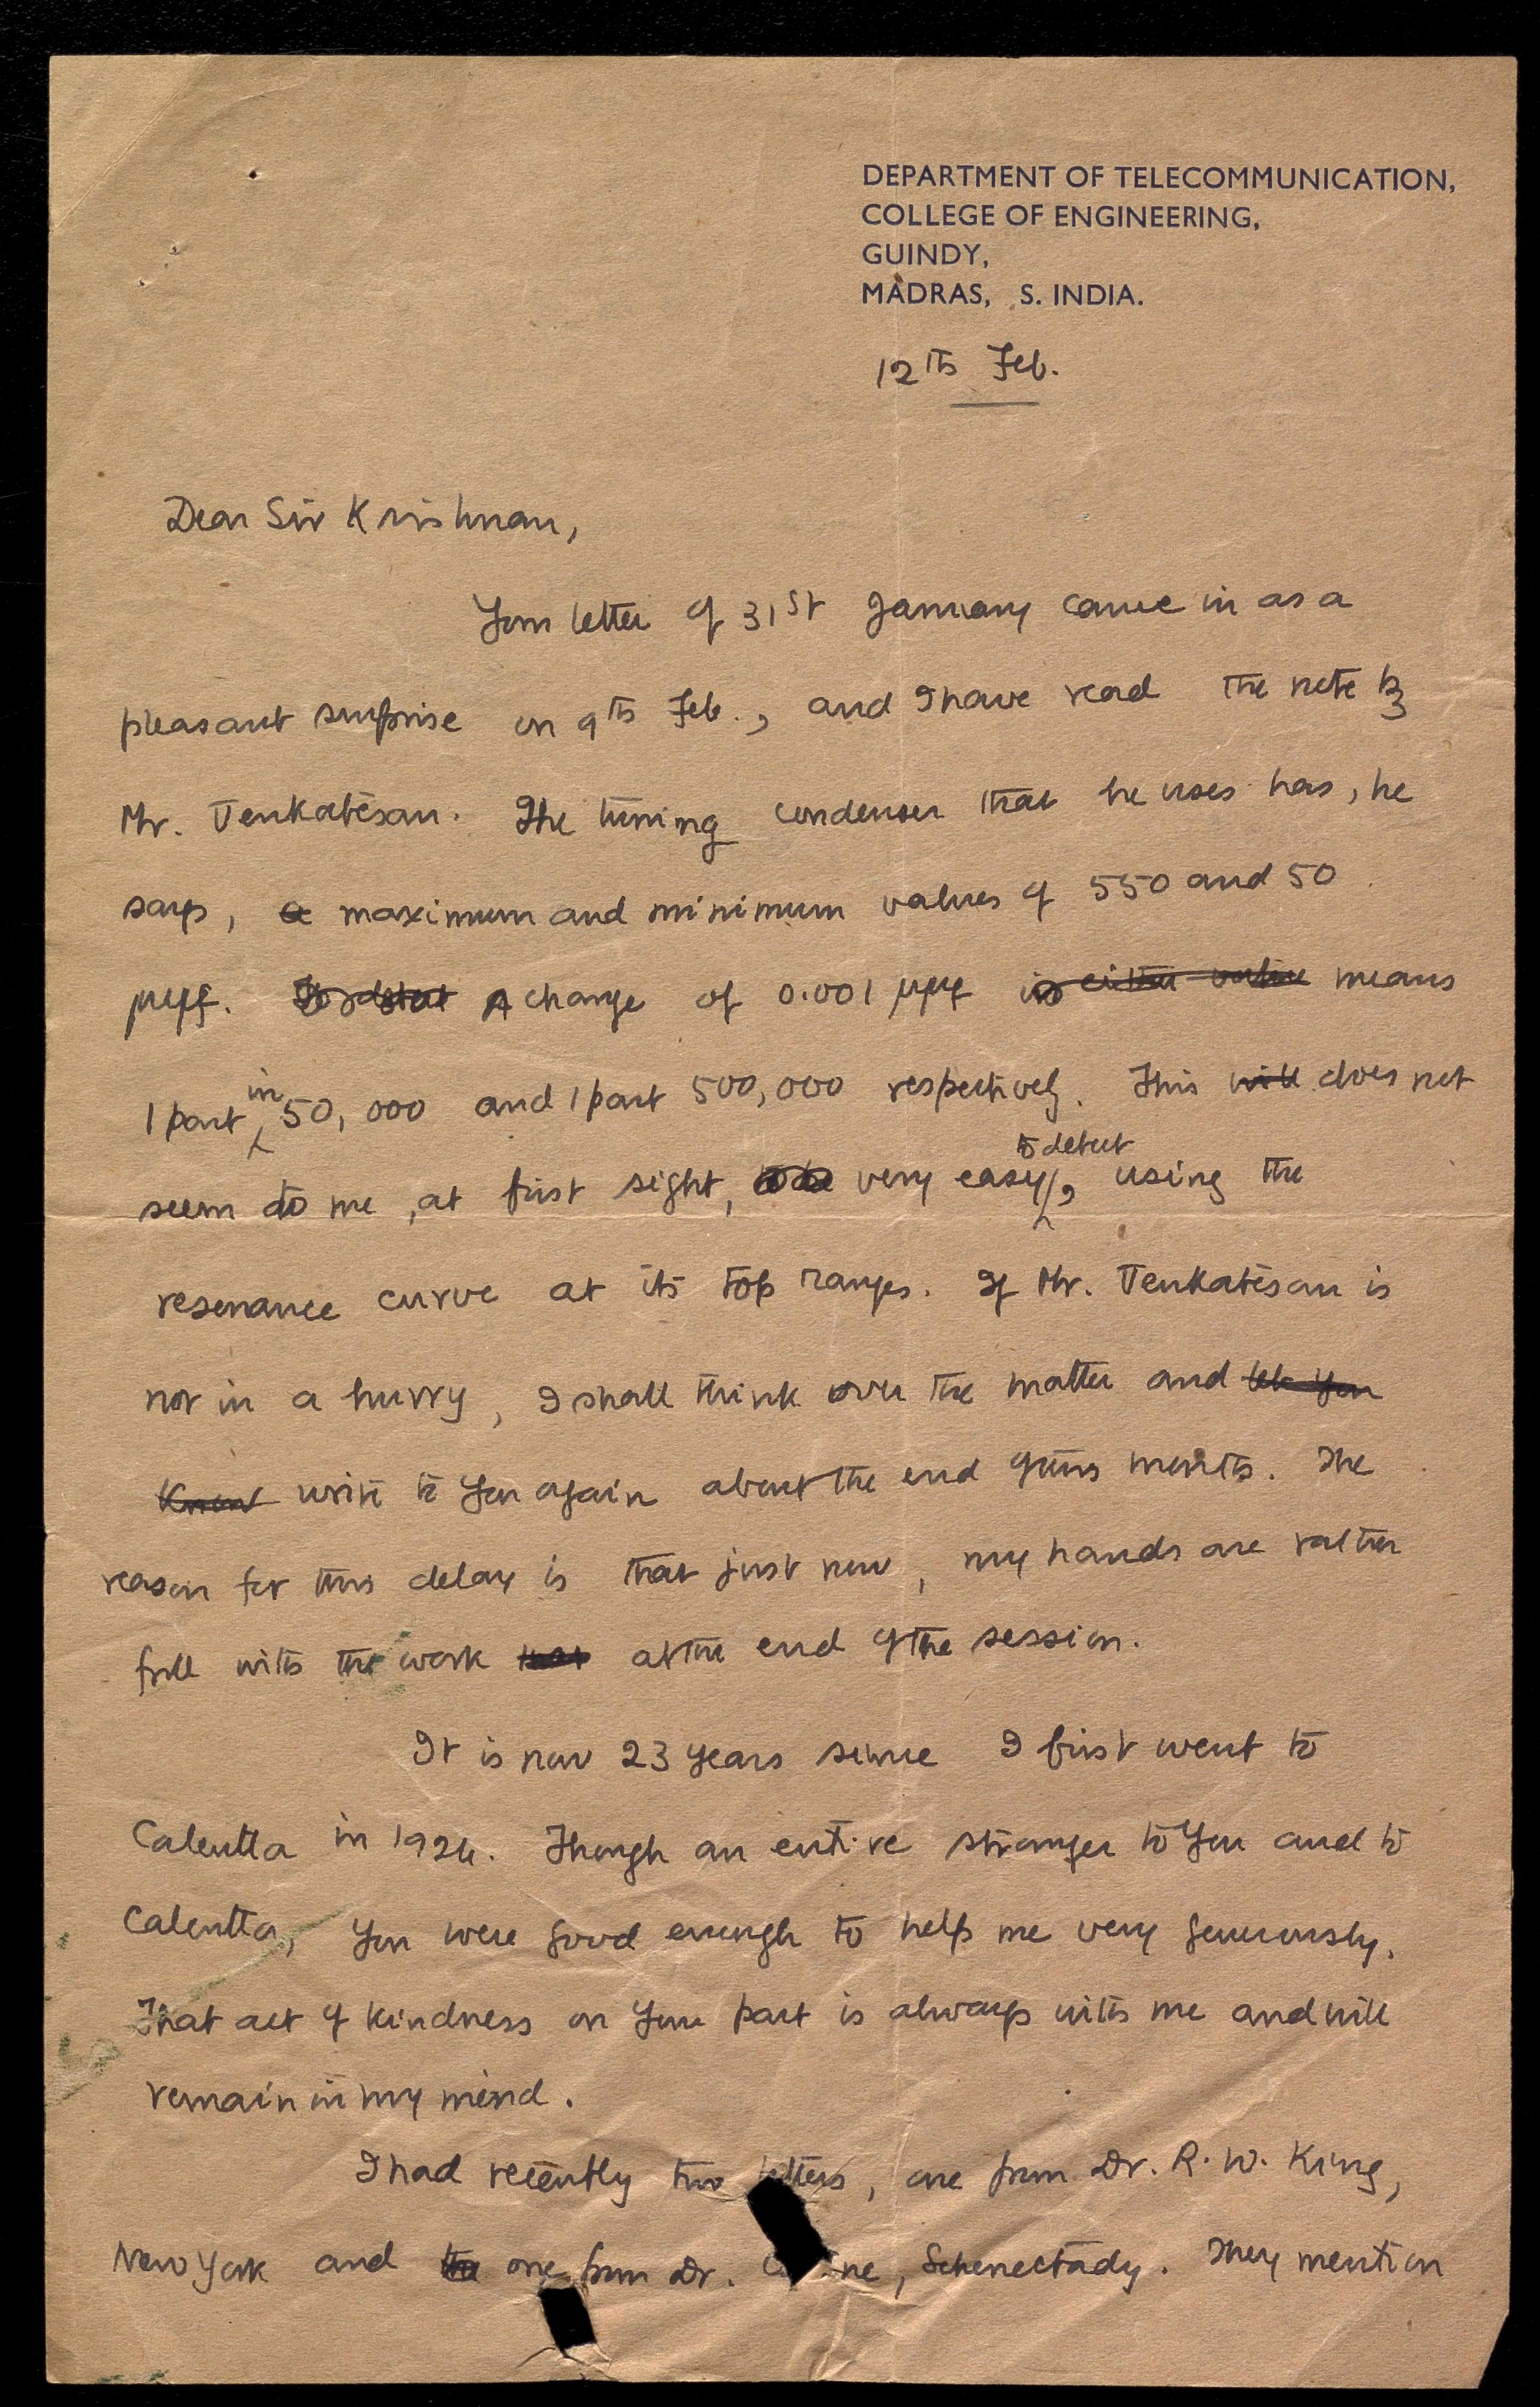 DEPARTMENT OF TELECOMMUNICATION,
COLLEGE OF ENGINEERING,
GUINDY,
MADRAS, S. INDIA.
12th Feb.
Dear Sir Krishnan,
Your letter of 31st January came in as a
pleasant surprise on 9th Feb., and I have read the note by
Mr. Venkatesan. The tuning condenser that he uses has, he
says, a maximum and minimum values of 550 and 50
μμf. To detect A change of 0.001 μμf in either value means
1 part in 50,000 and 1 part 500,000 respectively. This will does not
seem to me, at first sight, to be very easy to detect, using the
resonance curve at its top ranges. If Mr. Venkatesan is
not in a hurry, I shall think over the matter and let you
know write to you again about the end of this month. The
reason for this delay is that just now, my hands are rather
full with the work at the end of the session.
It is now 23 years since I first went to
Calcutta in 1924. Though an entire stranger to you and to
Calcutta, you were good enough to help me very generously.
That act of kindness on your part is always with me and will
remain in my mind.
I had recently two letters, one from Dr. R. W. King,
New York and one from Dr. , Schenectady. They mention